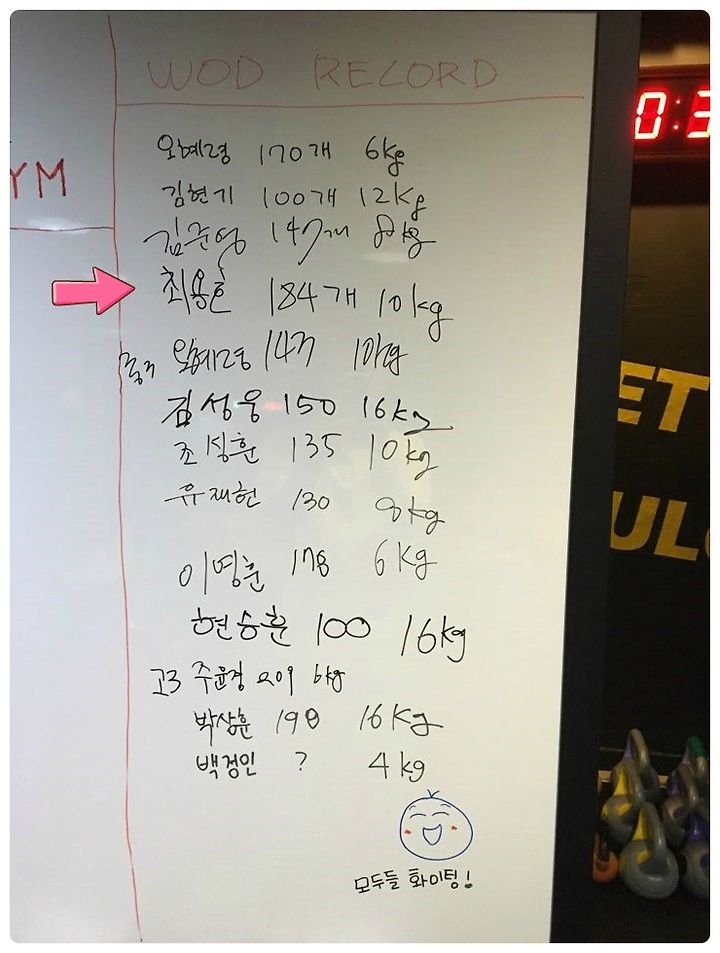 WOD RECORD
YM
오혜령 170개 6kg
김현기 100개 12kg
김준영 147개 8kg
최용한 184개 10kg
중3 오혜령 143 10kg
김성웅 150 16kg
조성훈 135 10kg
유재헌 130 8kg
이영훈 178 6kg
현승훈 100 16kg
고3 주윤정 209 6kg
박상훈 198 16kg
백정인 ? 4kg
모두들 화이팅!
03
ET
ULO